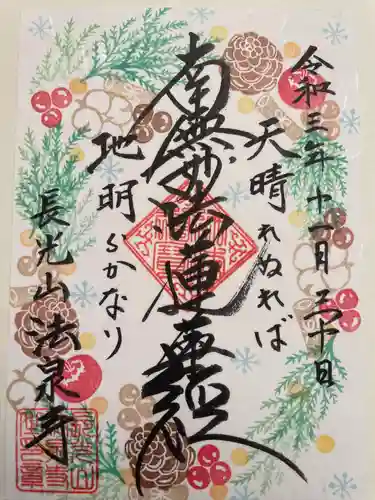 令和三年十一月三十日
天晴れぬれば
南無妙法蓮華経
地明らかなり
長光山法泉寺